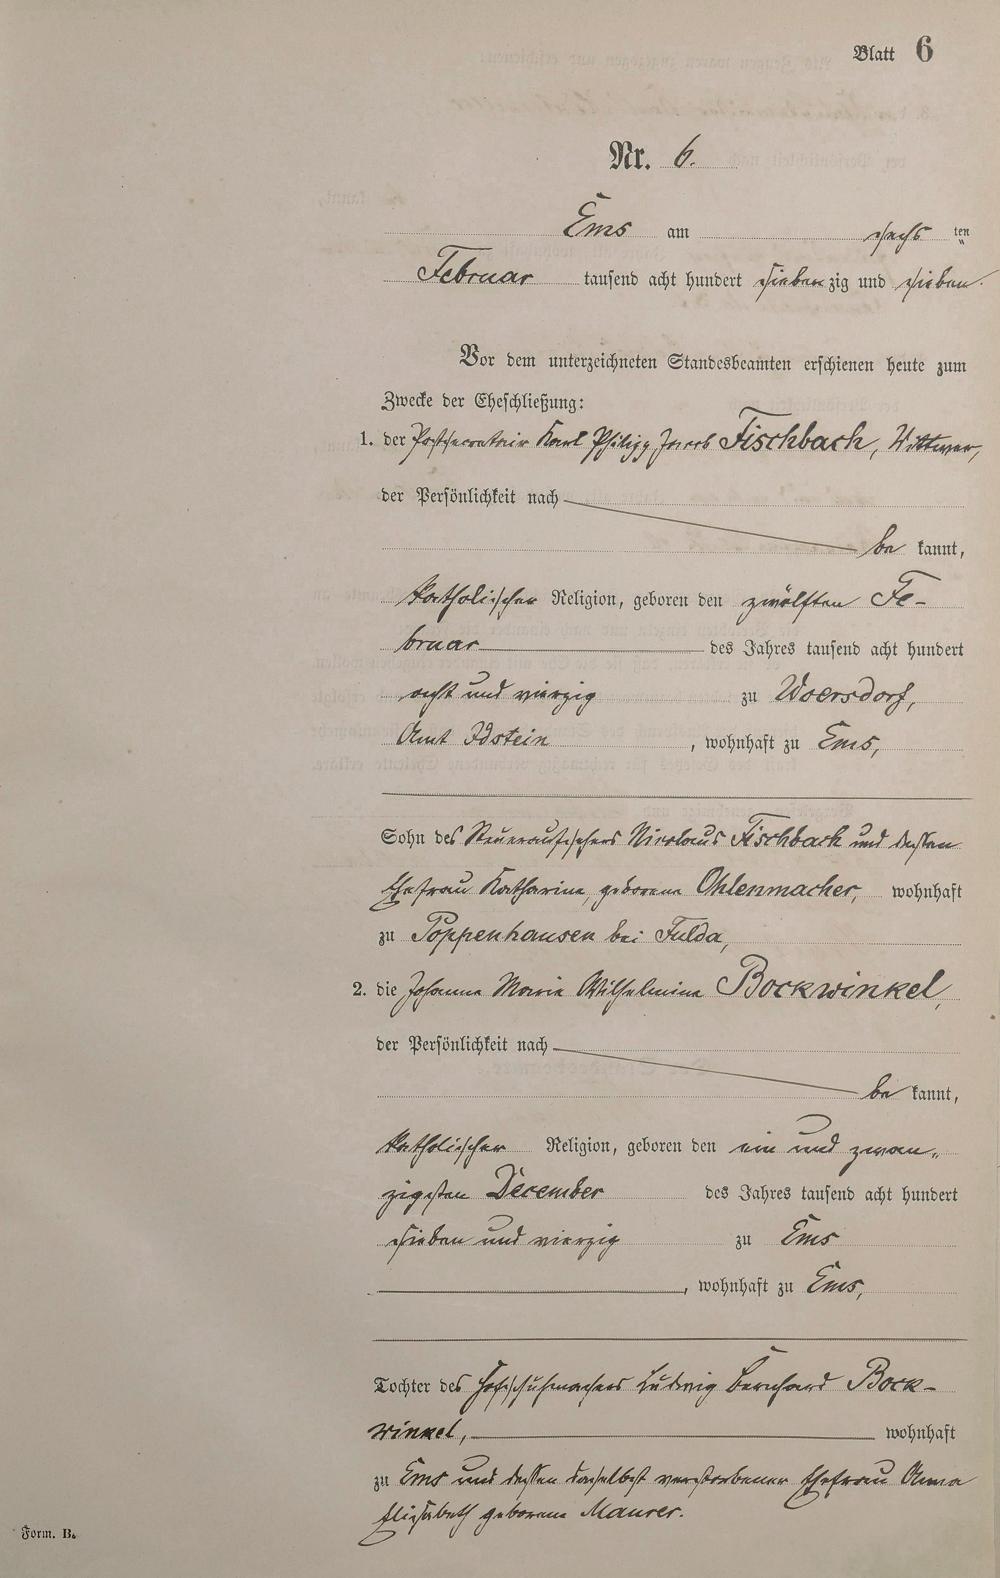 Blatt 6
Nr. 6.
Ems am sechs ten
Februar tausend acht hundert siebenzig und sieben.
Vor dem unterzeichneten Standesbeamten erschienen heute zum
Zwecke der Eheschließung:
1. der Postsecretair Karl Philipp Jacob Fischbach, Wittwer,
der Persönlichkeit nach
bekannt,
katholischer Religion, geboren den zwölften Fe-
bruar des Jahres tausend acht hundert
acht und vierzig zu Woersdorf,
Amt Idstein, wohnhaft zu Ems,
Sohn des Steueraufsehers Nicolaus Fischbach und dessen
Ehefrau Katharina, geborene Ohlenmacher, wohnhaft
zu Poppenhausen bei Fulda,
2. die Johanna Maria Wilhelmina Bockwinkel,
der Persönlichkeit nach
bekannt,
katholischer Religion, geboren den ein und zwan-
zigsten December des Jahres tausend acht hundert
sieben und vierzig zu Ems
, wohnhaft zu Ems,
Tochter des Hofschuhmachers Ludwig Bernhard Bock-
winkel, wohnhaft
zu Ems und dessen daselbst verstorbener Ehefrau Anna
Elisabeth geborene Maurer.
Form. B.